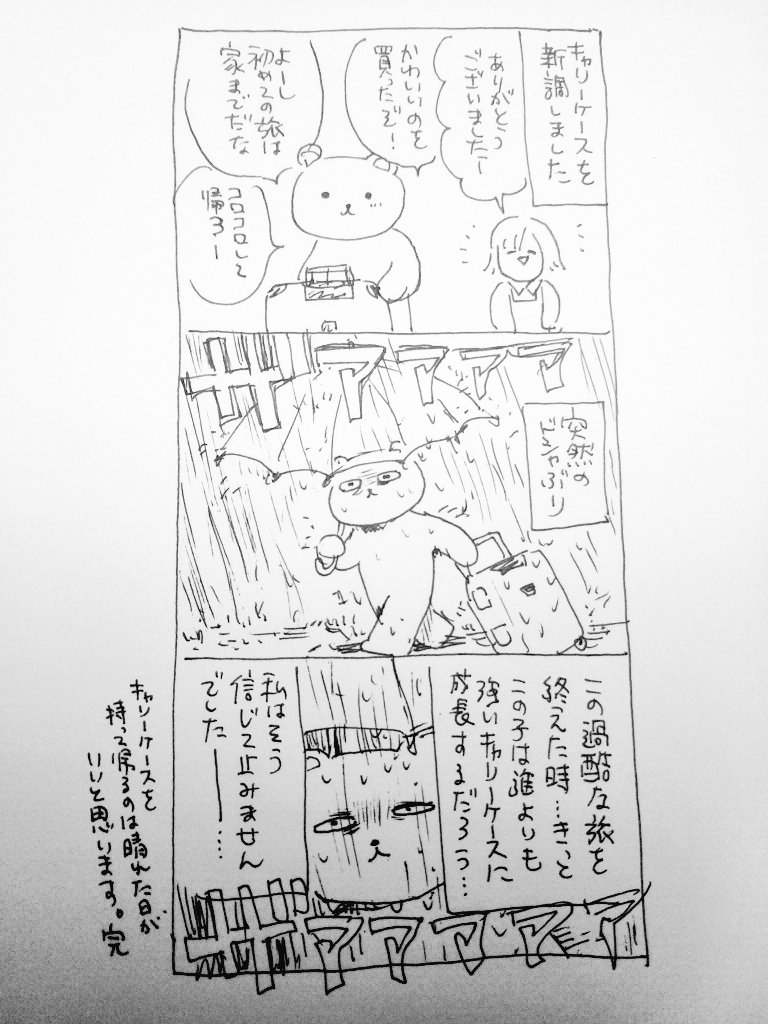 キャリーケースを
新調しました
ありがとう
ございましたー
かわいいのを
買ったぞ!
よーし
初めての旅は
家までだな
コロコロして
帰ろー
ザァァァァ
突然の
ドシャぶり
この過酷な旅を
終えた時…きっと
この子は誰よりも
強いキャリーケースに
成長するだろう…
私はそう
信じて止みません
でした―――…
ザァァァァァ
キャリーケースを
持って帰るのは晴れた日が
いいと思います。完